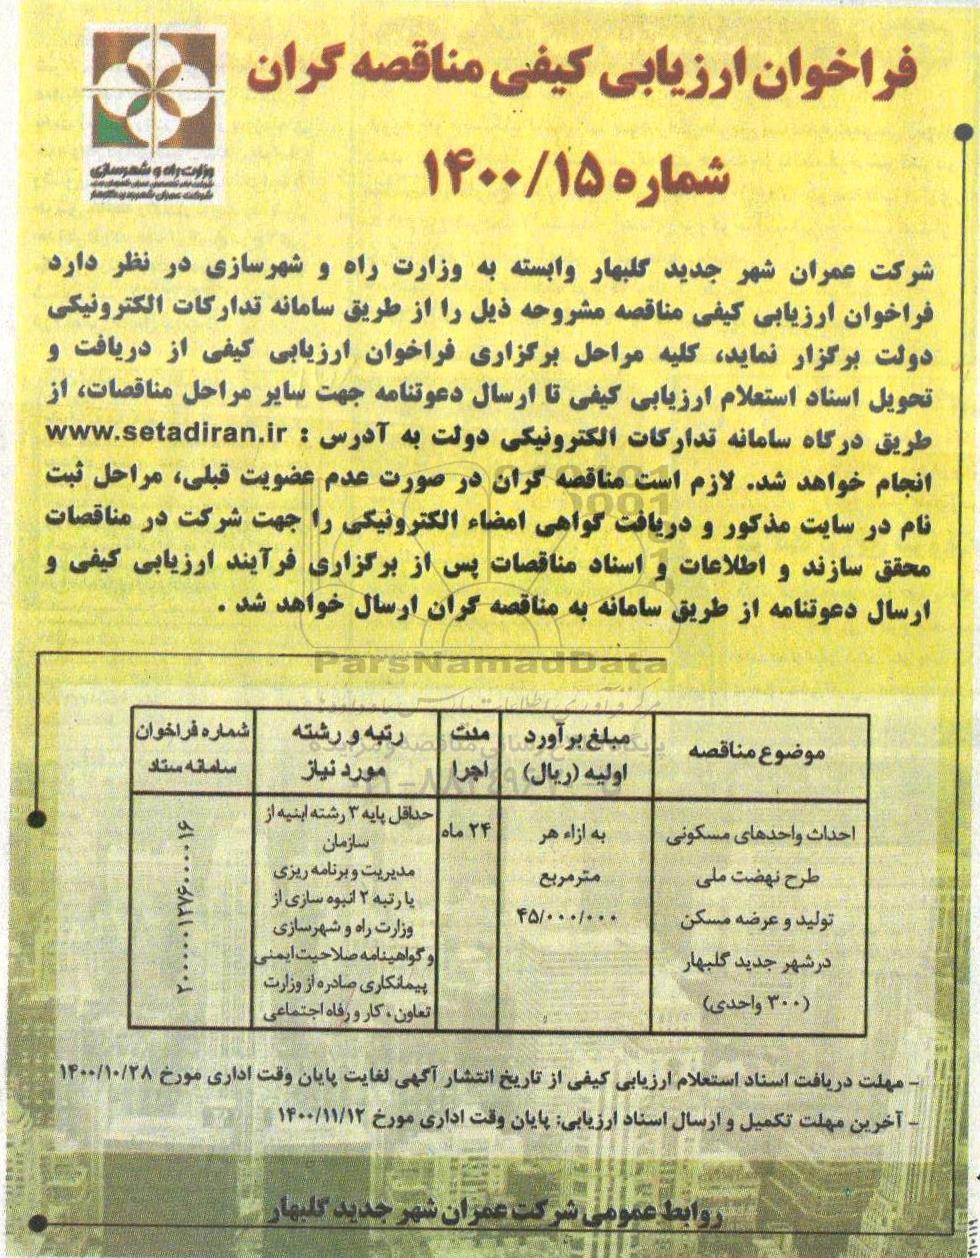 فراخوان ارزیابی کیفی مناقصه گران
شماره ۱۴۰۰/۱۵
وزارت راه و شهرسازی
شرکت عمران شهر جدید گلبهار وابسته به وزارت راه و شهرسازی در نظر دارد
فراخوان ارزیابی کیفی مناقصه مشروحه ذیل را از طریق سامانه تدارکات الکترونیکی
دولت برگزار نماید، کلیه مراحل برگزاری فراخوان ارزیابی کیفی از دریافت و
تحویل اسناد استعلام ارزیابی کیفی تا ارسال دعوتنامه جهت سایر مراحل مناقصات، از
طریق درگاه سامانه تدارکات الکترونیکی دولت به آدرس : www.setadiran.ir
انجام خواهد شد. لازم است مناقصه گران در صورت عدم عضویت قبلی، مراحل ثبت
نام در سایت مذکور و دریافت گواهی امضاء الکترونیکی را جهت شرکت در مناقصات
محقق سازند و اطلاعات و اسناد مناقصات پس از برگزاری فرآیند ارزیابی کیفی و
ارسال دعوتنامه از طریق سامانه به مناقصه گران ارسال خواهد شد .
ParsNamadData
موضوع مناقصه
مبلغ برآورد
اولیه (ریال)
مدت
اجرا
رتبه و رشته
مورد نیاز
شماره فراخوان
سامانه ستاد
احداث واحدهای مسکونی
طرح نهضت ملی
تولید و عرضه مسکن
درشهر جدید گلبهار
(۳۰۰ واحدی)
به ازاء هر
مترمربع
۴۵/۰۰۰/۰۰۰
۲۴ ماه
حداقل پایه ۳ رشته ابنیه از
سازمان
مدیریت و برنامه ریزی
یا رتبه ۲ انبوه سازی از
وزارت راه و شهرسازی
و گواهینامه صلاحیت ایمنی
پیمانکاری صادره از وزارت
تعاون، کار و رفاه اجتماعی
۲۰۰۰۰۰۱۲۷۶۰۰۰۰۱۶
- مهلت دریافت اسناد استعلام ارزیابی کیفی از تاریخ انتشار آگهی لغایت پایان وقت اداری مورخ ۱۴۰۰/۱۰/۲۸
- آخرین مهلت تکمیل و ارسال اسناد ارزیابی: پایان وقت اداری مورخ ۱۴۰۰/۱۱/۱۲
روابط عمومی شرکت عمران شهر جدید گلبهار